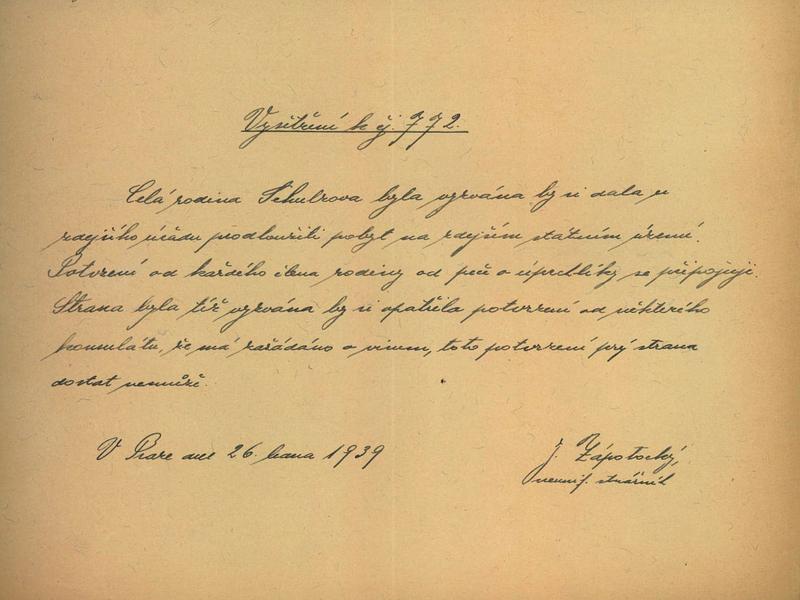 Vyšetření k čj. 772.
Celá rodina Schulzova byla vyzvána by si dala u
zdejšího úřadu prodloužiti pobyt na zdejším státním území.
Potvrzení od každého člena rodiny od péče o uprchlíky se připojují.
Strana byla též vyzvána by si opatřila potvrzení od některého
konsulátu, že má zažádáno o visum, toto potvrzení prý strana
dostat nemůže.
V Praze dne 26. února 1939
J. Zápotocký,
neunif. strážník